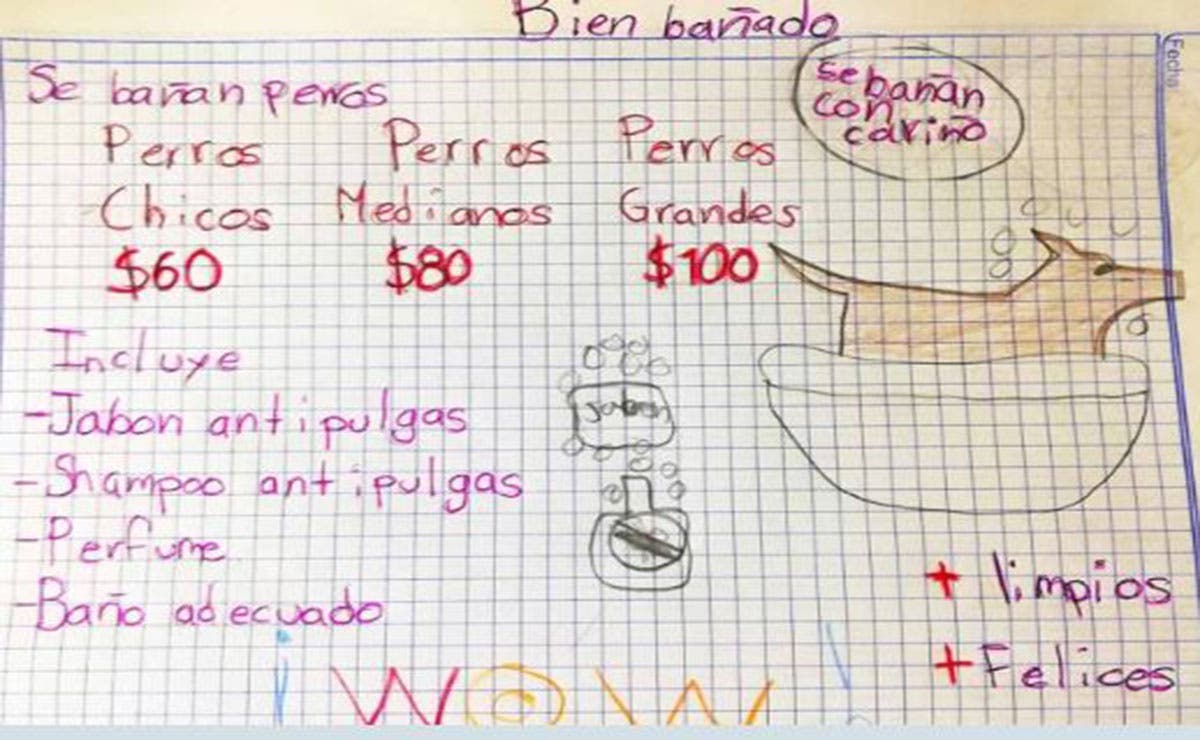 Bien bañado
Se bañan perros
Perros Perros Perros
Chicos Medianos Grandes
$60 $80 $100
se bañan
con
cariño
Incluye
-Jabon antipulgas
-Shampoo antipulgas
-Perfume
-Baño adecuado
Jabon
+ limpios
+ Felices
¡wow!
Fecha